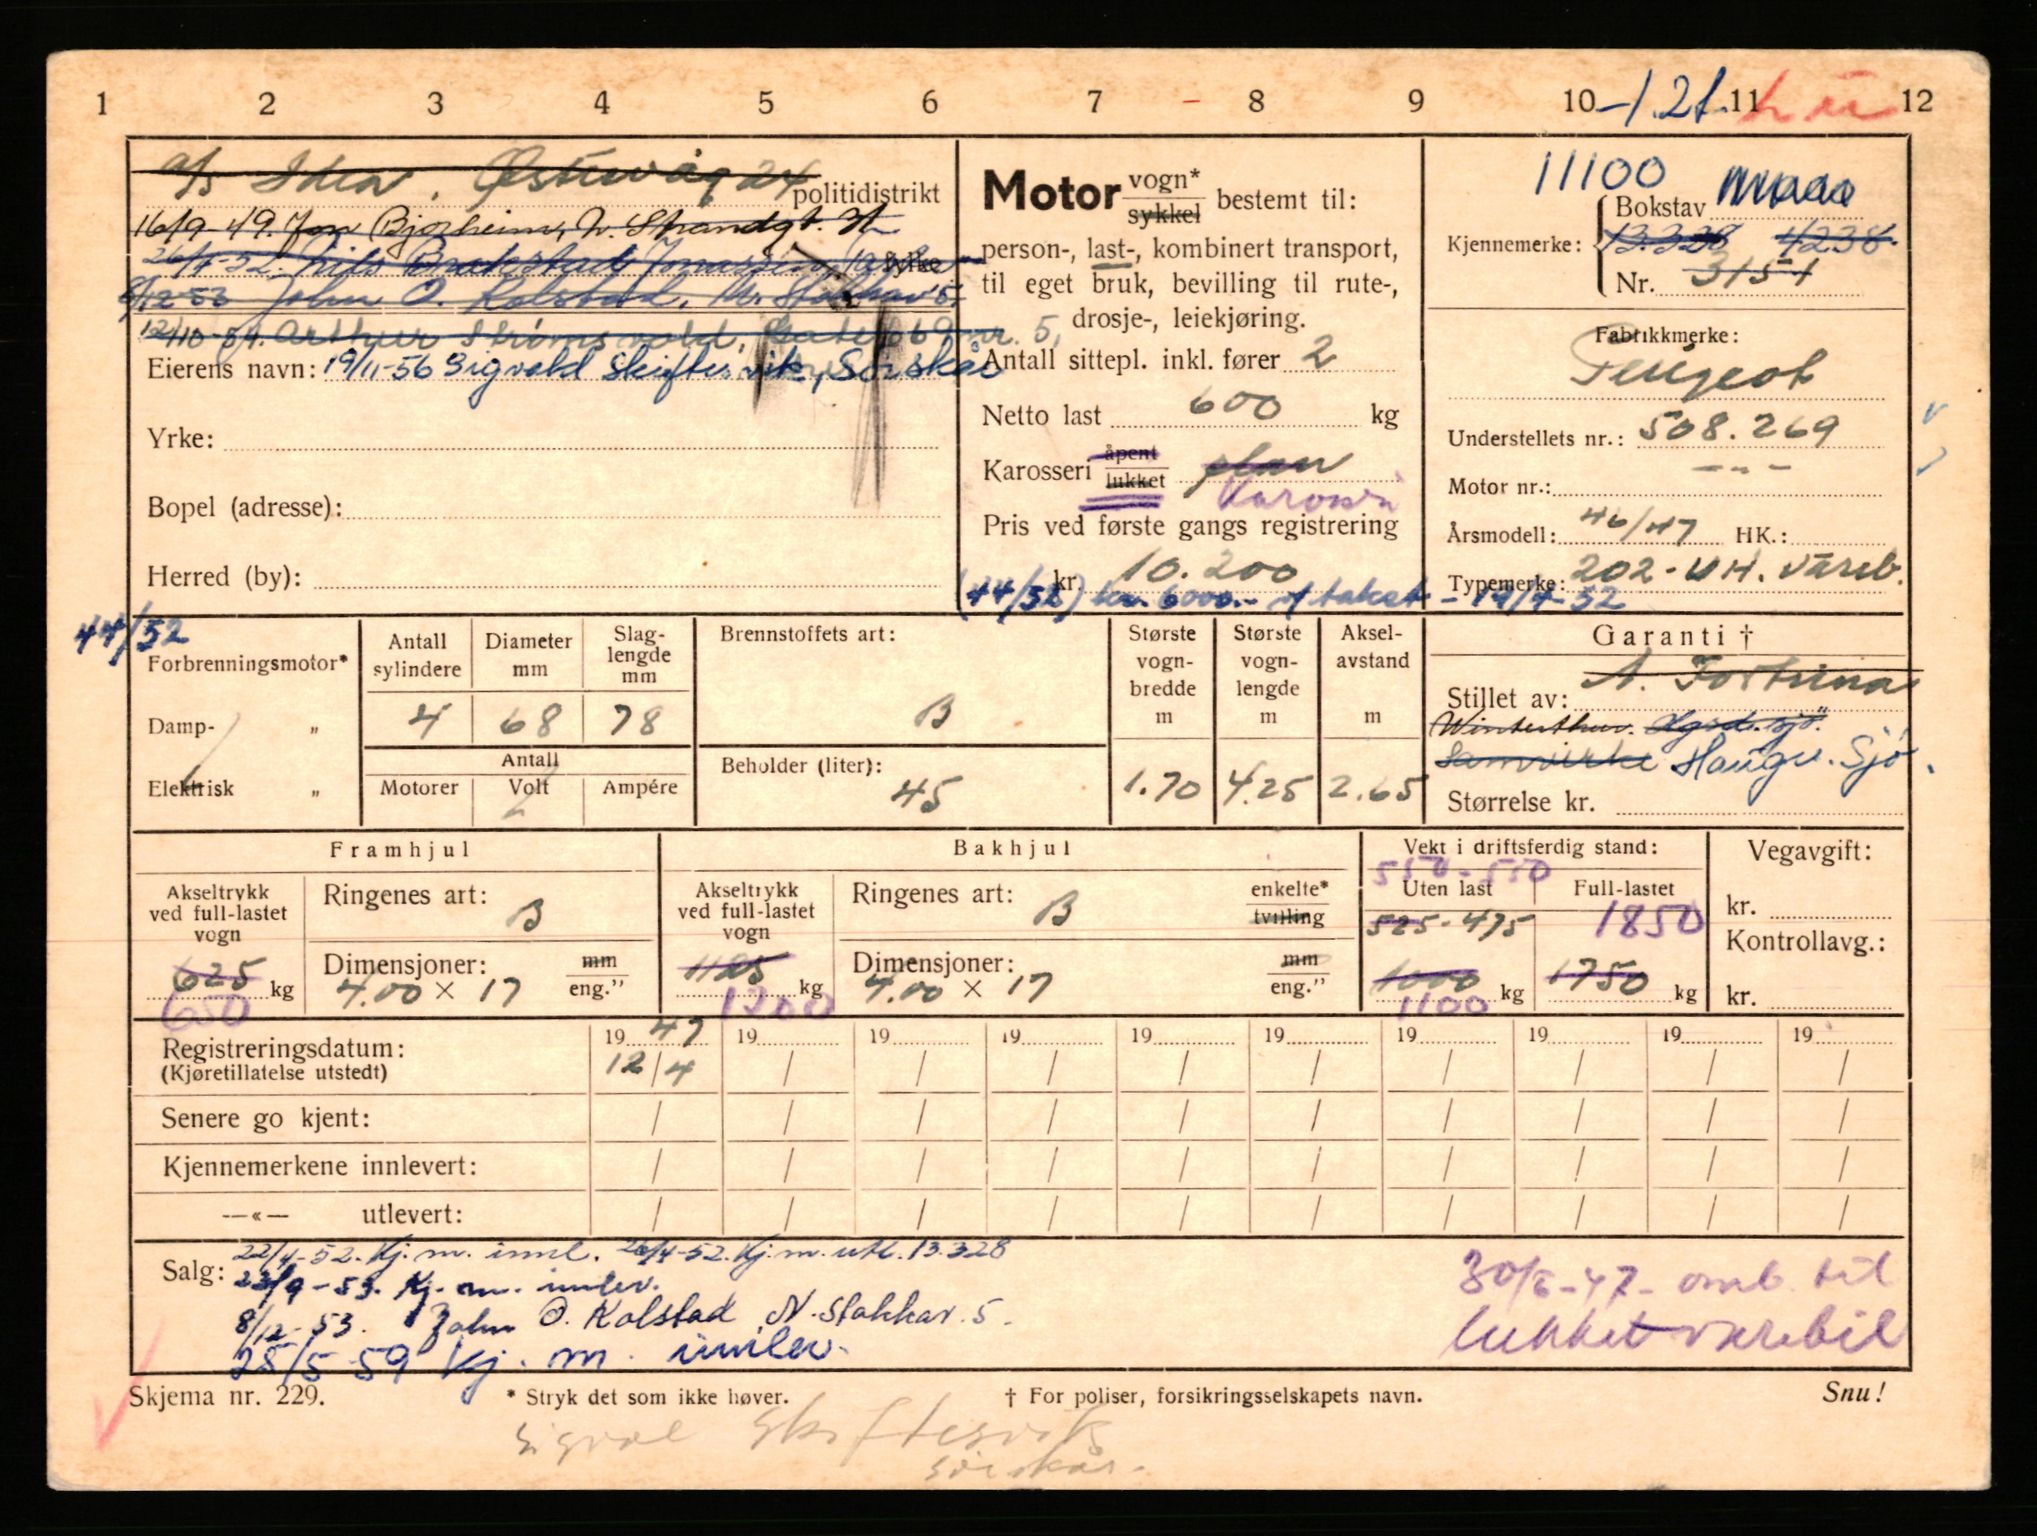 1 2 3 4 5 6 7 8 9 10 -1.21. 11 12
A/S Idea, Østervåg 24
politidistrikt
16/9-49. Jon Bjorheim, N. Strandgt.
26/4-52 Nils Brakstad Jonassen,
fylke
8/12-53 John O. Kolstad, N. Stakkav 5.
12/10-54. Arthur Strømsvold, Gate 69 nr. 5,
Eierens navn: 19/11-56 Sigvald Skiftesvik, Sørskår
Yrke:
Bopel (adresse):
Herred (by):
Motor vogn* sykkel bestemt til:
person-, last-, kombinert transport,
til eget bruk, bevilling til rute-,
drosje-, leiekjøring.
Antall sittepl. inkl. fører 2
Netto last 600 kg
Karosseri åpent lukket plan
Varevogn
Pris ved første gangs registrering
kr. 10.200
(44/52) kr. 6000.- takst - 19/4-52
11100
Bokstav
Kjennemerke: 13.328 4238.
Nr. 3151
Fabrikkmerke:
Peugeot
Understellets nr.: 508.269
Motor nr.: - " -
Årsmodell: 46/47 HK.:
Typemerke: 202-UH. Vareb.
44/52
Forbrenningsmotor*
Damp- "
Elektrisk "
Antall sylindere Diameter mm Slaglengde mm
4 68 78
Antall
Motorer Volt Ampére
Brennstoffets art:
B
Beholder (liter):
45
Største vognbredde m Største vognlengde m Akselavstand m
1.70 4.25 2.65
Garanti †
Stillet av: A. Fortuna
Winterthur. Hgsd. sjø.
Samvirke Hauge. Sjø.
Størrelse kr.
Framhjul
Akseltrykk ved full-lastet vogn
625 kg
650
Ringenes art:
B
Dimensjoner: mm
4.00 × 17 eng."
Bakhjul
Akseltrykk ved full-lastet vogn
1125 kg
1200
Ringenes art: enkelte*
B tvilling
Dimensjoner: mm
4.00 × 17 eng."
Vekt i driftsferdig stand:
550-550
Uten last Full-lastet
525-475 1850
1000 1750 kg
1100 kg
Vegavgift:
kr.
Kontrollavg.:
kr.
Registreringsdatum: 19 47 19 19 19 19 19 19 19 19 19
(Kjøretillatelse utstedt) 12/4 / / / / / / / / /
Senere go kjent: / / / / / / / / / /
Kjennemerkene innlevert: / / / / / / / / / /
—«— utlevert: / / / / / / / / / /
Salg: 22/4-52. Kj.m. innl. 26/4-52. Kj.m. utl. 13.328
23/9-53. Kj. m. innlev.
8/12-53. John O. Kolstad N. Stakkav. 5.
25/5 59 Kj. m. innlev.
30/5-47- omb. til
lukket varebil
Skjema nr. 229.
* Stryk det som ikke høver.
† For poliser, forsikringsselskapets navn.
Snu!
Sigval Skiftesvik
Sørskår.